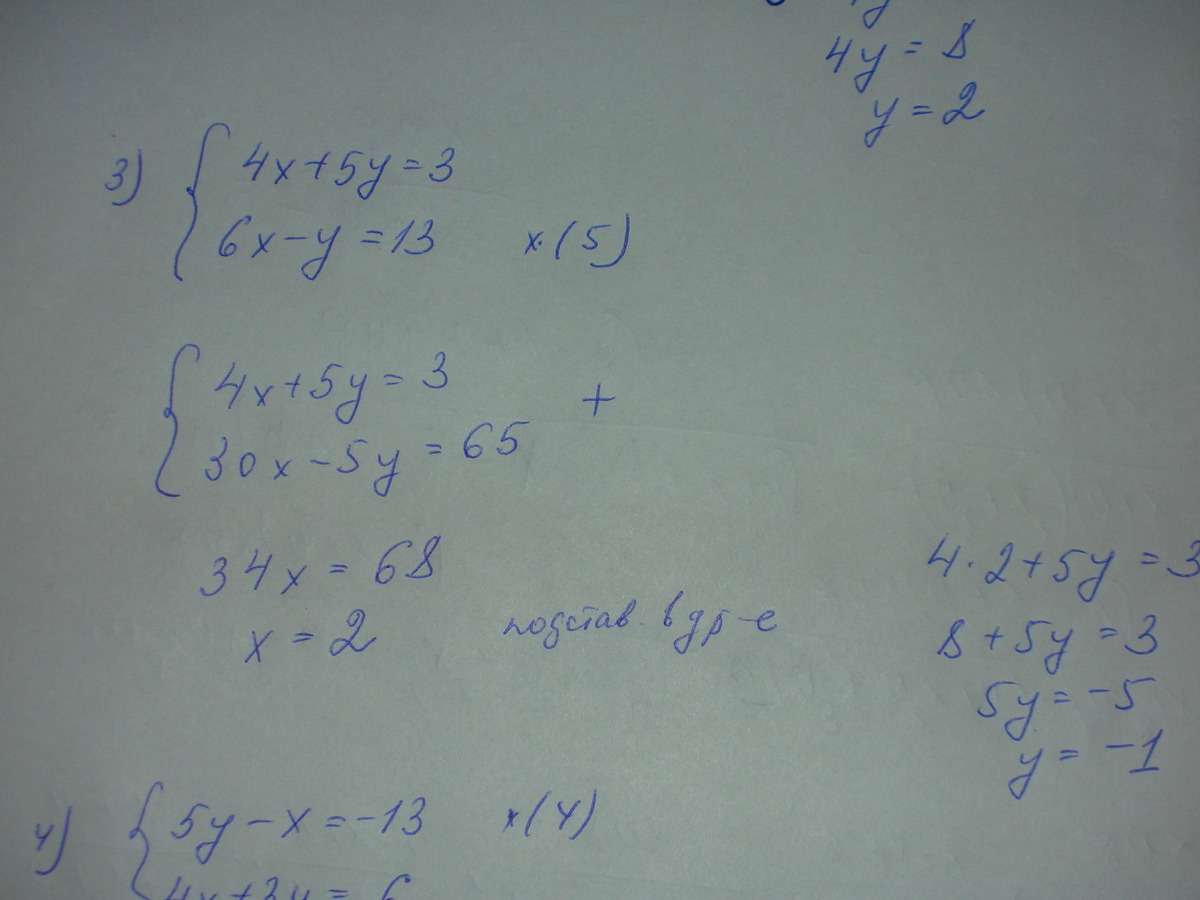 4y = 8
y = 2
3) { 4x+5y=3
6x-y=13 x·(5)
{ 4x+5y=3 +
30x-5y=65
34x = 68
x = 2 подстав. в др-е
4·2+5y=3
8+5y=3
5y=-5
y=-1
4) { 5y-x=-13 x(4)